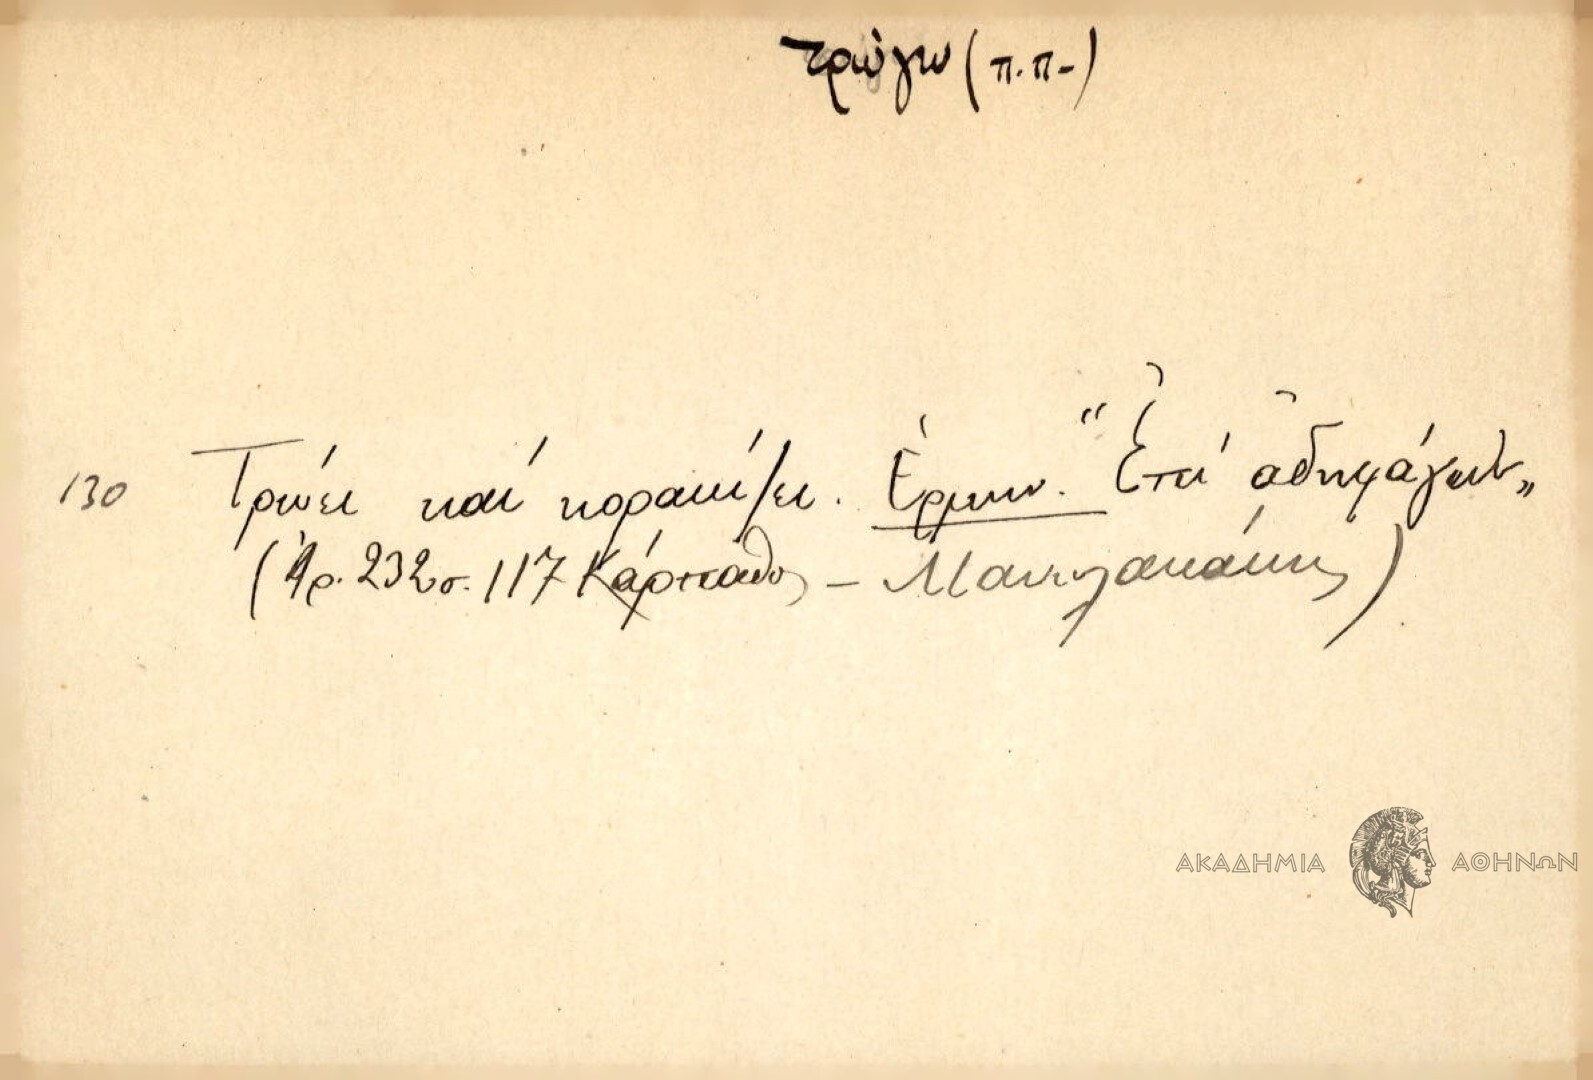 τρώγω (π.π-)
130 Τρώει καί κορακιάζει. Ἑρμην. "Ἐπί ἀδηφάγων„
(Ἀρ. 232 σ. 117 Κάρπαθος – Μανωλακάκης)
ΑΚΑΔΗΜΙΑ ΑΘΗΝΩΝ